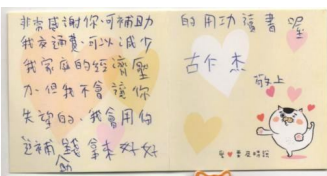 非常感謝你，可補助
我交通費，可以減少
我家庭的經濟壓
力，但我不會讓你
失望的，我會用你
這補錢拿來好好
助
的用功讀書喔
古仁杰
敬上